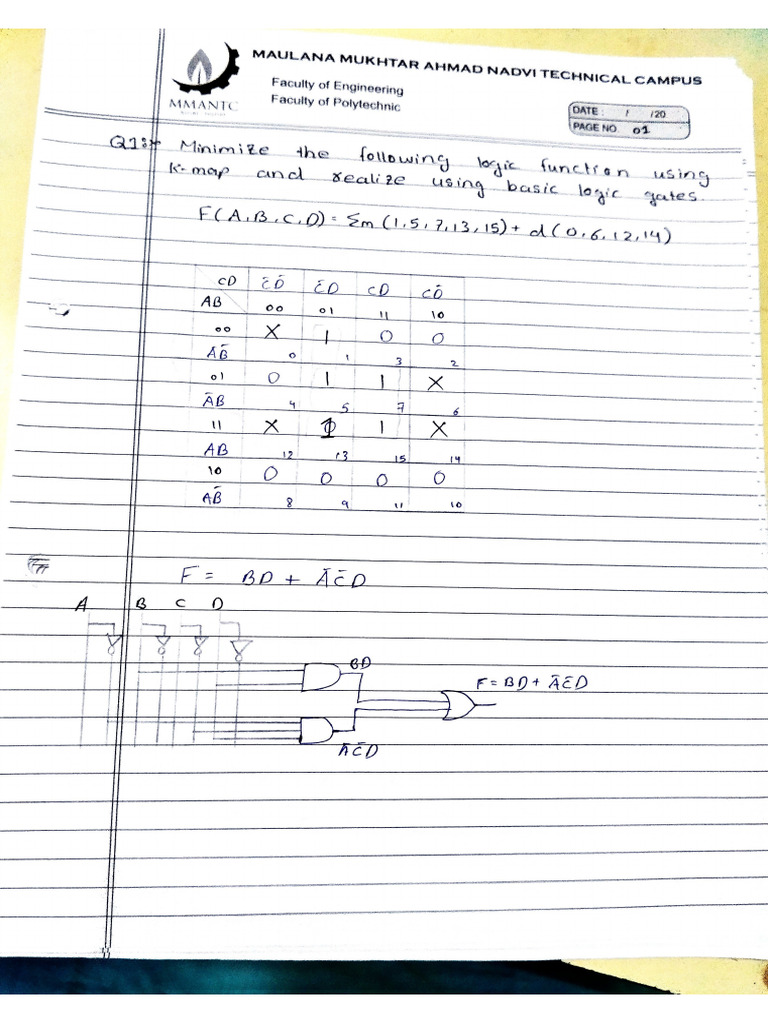 MAULANA MUKHTAR AHMAD NADVI TECHNICAL CAMPUS
Faculty of Engineering
Faculty of Polytechnic
MMANTC
DATE: / /20
PAGE NO. 01
Q1:- Minimize the following logic function using
K-map and realize using basic logic gates.
F(A,B,C,D) = Σm (1,5,7,13,15) + d(0,6,12,14)
CD C̄D̄ C̄D CD CD̄
AB 00 01 11 10
00 X 1 0 0
ĀB̄ 0 1 3 2
01 0 1 1 X
ĀB 4 5 7 6
11 X 1 1 X
AB 12 13 15 14
10 0 0 0 0
AB̄ 8 9 11 10
F = BD + ĀC̄D
A B C D
BD
F = BD + ĀC̄D
ĀC̄D